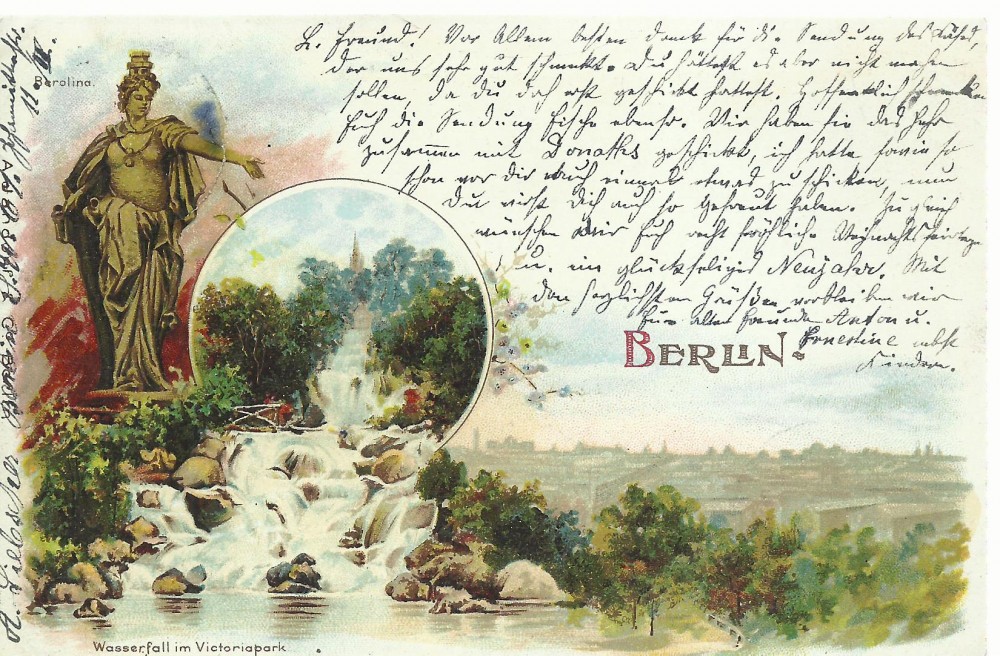 Berolina.
L. Freund! Vor Allem besten Dank für d. Sendung des Käses,
der uns sehr gut schmeckt. Du hättest es aber nicht machen
sollen, da du doch erst geschickt hattest. Hoffentlich schmecken
Euch die Sendung Fische ebenso. Wir haben sie das Jahr
zusammen mit Donaths geschickt, ich hatte sowieso
schon vor dir auch einmal etwas zu schicken, nun
Du wirst Dich auch so gefreut haben. Zugleich
wünschen wir Euch recht fröhliche Weihnachtsfeiertage
u. ein glückseliges Neujahr. Mit
den herzlichsten Grüßen verbleiben wir
Eure alten Freunde Anton u.
Ernestine nebst
Kindern.
BERLIN.
Wasserfall im Victoriapark